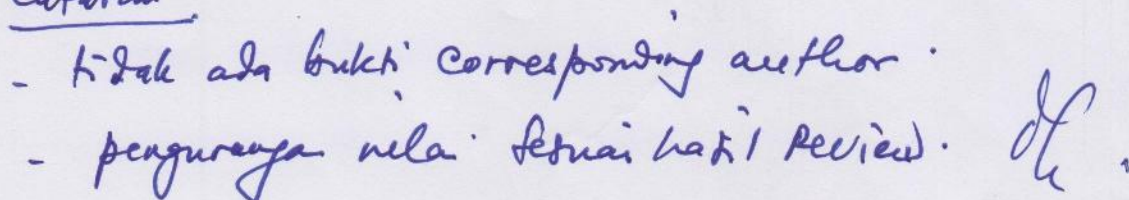 Catatan
- tidak ada bukti corresponding author.
- pengurangan nilai sesuai hasil Review.